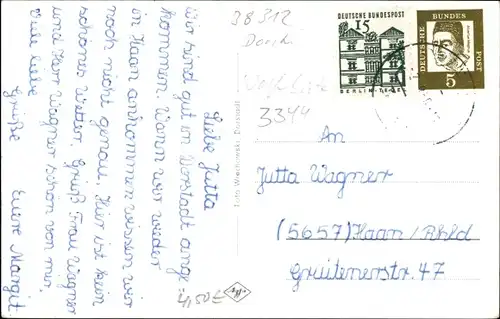 Liebe Jutta
Wir sind gut in Vorstadt ange-
kommen. Wann wir wieder
in Haan ankommen wissen wir
noch nicht genau. Hier ist kein
schönes Wetter. Grüß Frau Wagner
und Herr Wagner schön von mir.
Viele liebe
Grüße Eure Margit
4,50 €
38312
3344
DEUTSCHE BUNDESPOST
15
BERLIN-TEGEL
DEUTSCHE BUNDES POST
5
An
Jutta Wagner
(5657) Haan/Rhld
Grüitenerstr. 47